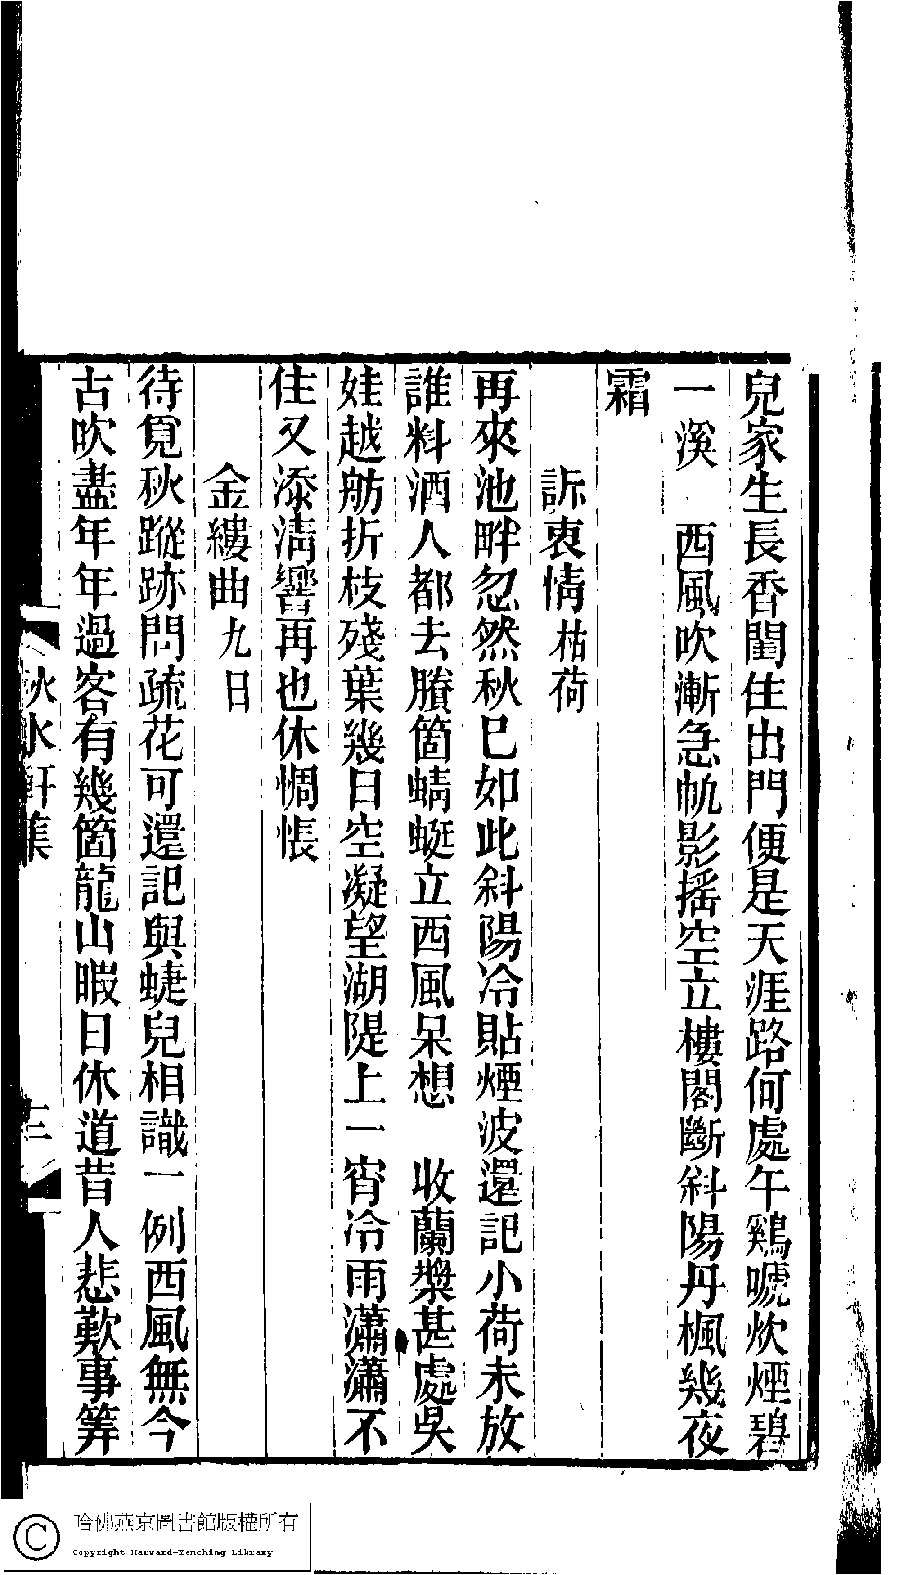 兒家生長香閨住出門便是天涯路何處午鷄嗁炊煙碧
一溪　西風吹漸急帆影摇空立樓閣斷斜陽丹楓幾夜
霜
訴衷情枯荷
再來池畔忽然秋已如此斜陽冷貼煙波還記小荷未放
誰料酒人都去賸箇蜻蜓立西風呆想　收蘭槳甚處吳
娃越舫折枝殘葉幾日空凝望湖隄上一宵冷雨瀟瀟不
住又添淸響再也休惆悵
金縷曲九日
待覓秋蹤跡問疏花可還記與蜨兒相識一例西風無今
古吹盡年年過客有幾箇龍山暇日休道昔人悲歎事筭
秋水軒集
十三
哈佛燕京圖書館版權所有
Copyright Harvard-Yenching Library